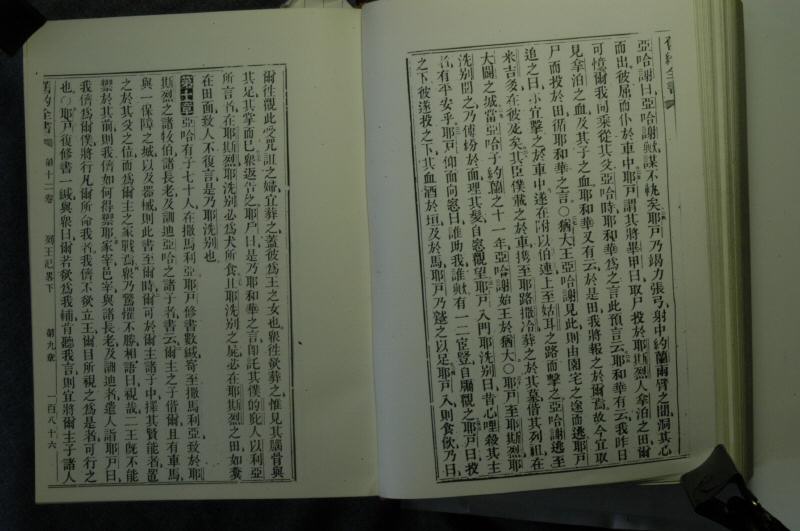 舊約全書
亞哈謝曰亞哈謝歟謀不軌矣耶戶乃竭力張弓射中約蘭兩臂之間洞其心
而出彼屈而仆於車中耶戶謂其將畢甲曰取尸投於耶斯烈人拿泊之田爾
可憶爾我同乘從其父亞哈時耶和華爲之言此預言云耶和華有云我昨日
見拿泊之血及其子之血耶和華又有云於是田我將報之於爾焉故今宜取
尸而投於田循耶和華之言○猶大王亞哈謝見此則由園宅之途而逃耶戶
追之曰亦宜擊之於車中遂在附以伯連上至姑耳之路而擊之亞哈謝逃至
米吉多在彼死矣其臣僕載之於車攜至耶路撒冷葬之於其墓偕其列祖在
大闢之城當亞哈子約蘭之十一年亞哈謝始王於猶大○耶戶至耶斯烈耶
洗別聞之乃傅粉於面理其髮自窻觀望耶戶入門耶洗別曰昔心哩殺其主
者有平安乎耶戶仰面向窻曰誰助我誰歟有一二宦豎自牖觀之耶戶曰投
之下彼遂投之下其血洒於垣及於馬耶戶乃躂之以足耶戶入則食飲乃曰
爾往觀此受咒詛之婦宜葬之蓋彼爲王之女也衆往欲葬之惟見其腦骨與
其足其掌而已衆返告之耶戶曰是乃耶和華之言卽託其僕的庇人以利亞
所言者在耶斯烈耶洗別必爲犬所食且耶洗別之屍必在耶斯烈之田如糞
在田面致人不復言是乃耶洗別也
第十章 亞哈有子七十人在撒馬利亞耶戶修書數緘寄至撒馬利亞致於耶
斯烈之諸牧伯諸長老及訓迪亞哈之諸子者書云爾主之子偕爾且有車馬
與一保障之城以及器械則此書至爾時爾可於爾主諸子中擇其賢能者置
之於其父之位而爲爾主之家戰焉衆乃驚懼不勝相語曰視哉二王旣不能
禦於其前則我儕如何得禦耶家宰邑宰與諸長老及訓迪者遣人詣耶戶曰
我儕爲爾僕將行凡爾所命我者我儕不欲立王爾目所視之爲是者可行之
也○耶戶復修書一緘與衆曰爾若欲爲我輔肯聽我言則宜將爾主子諸人
舊約全書 第十二卷 列王記畧下 第九章 一百八十六